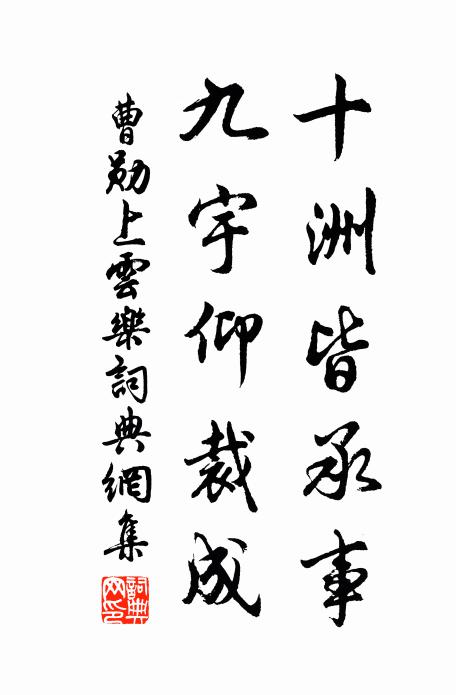 十洲皆承事
九宇仰裁成
曹勛上雲樂詞典網集
詞典网印